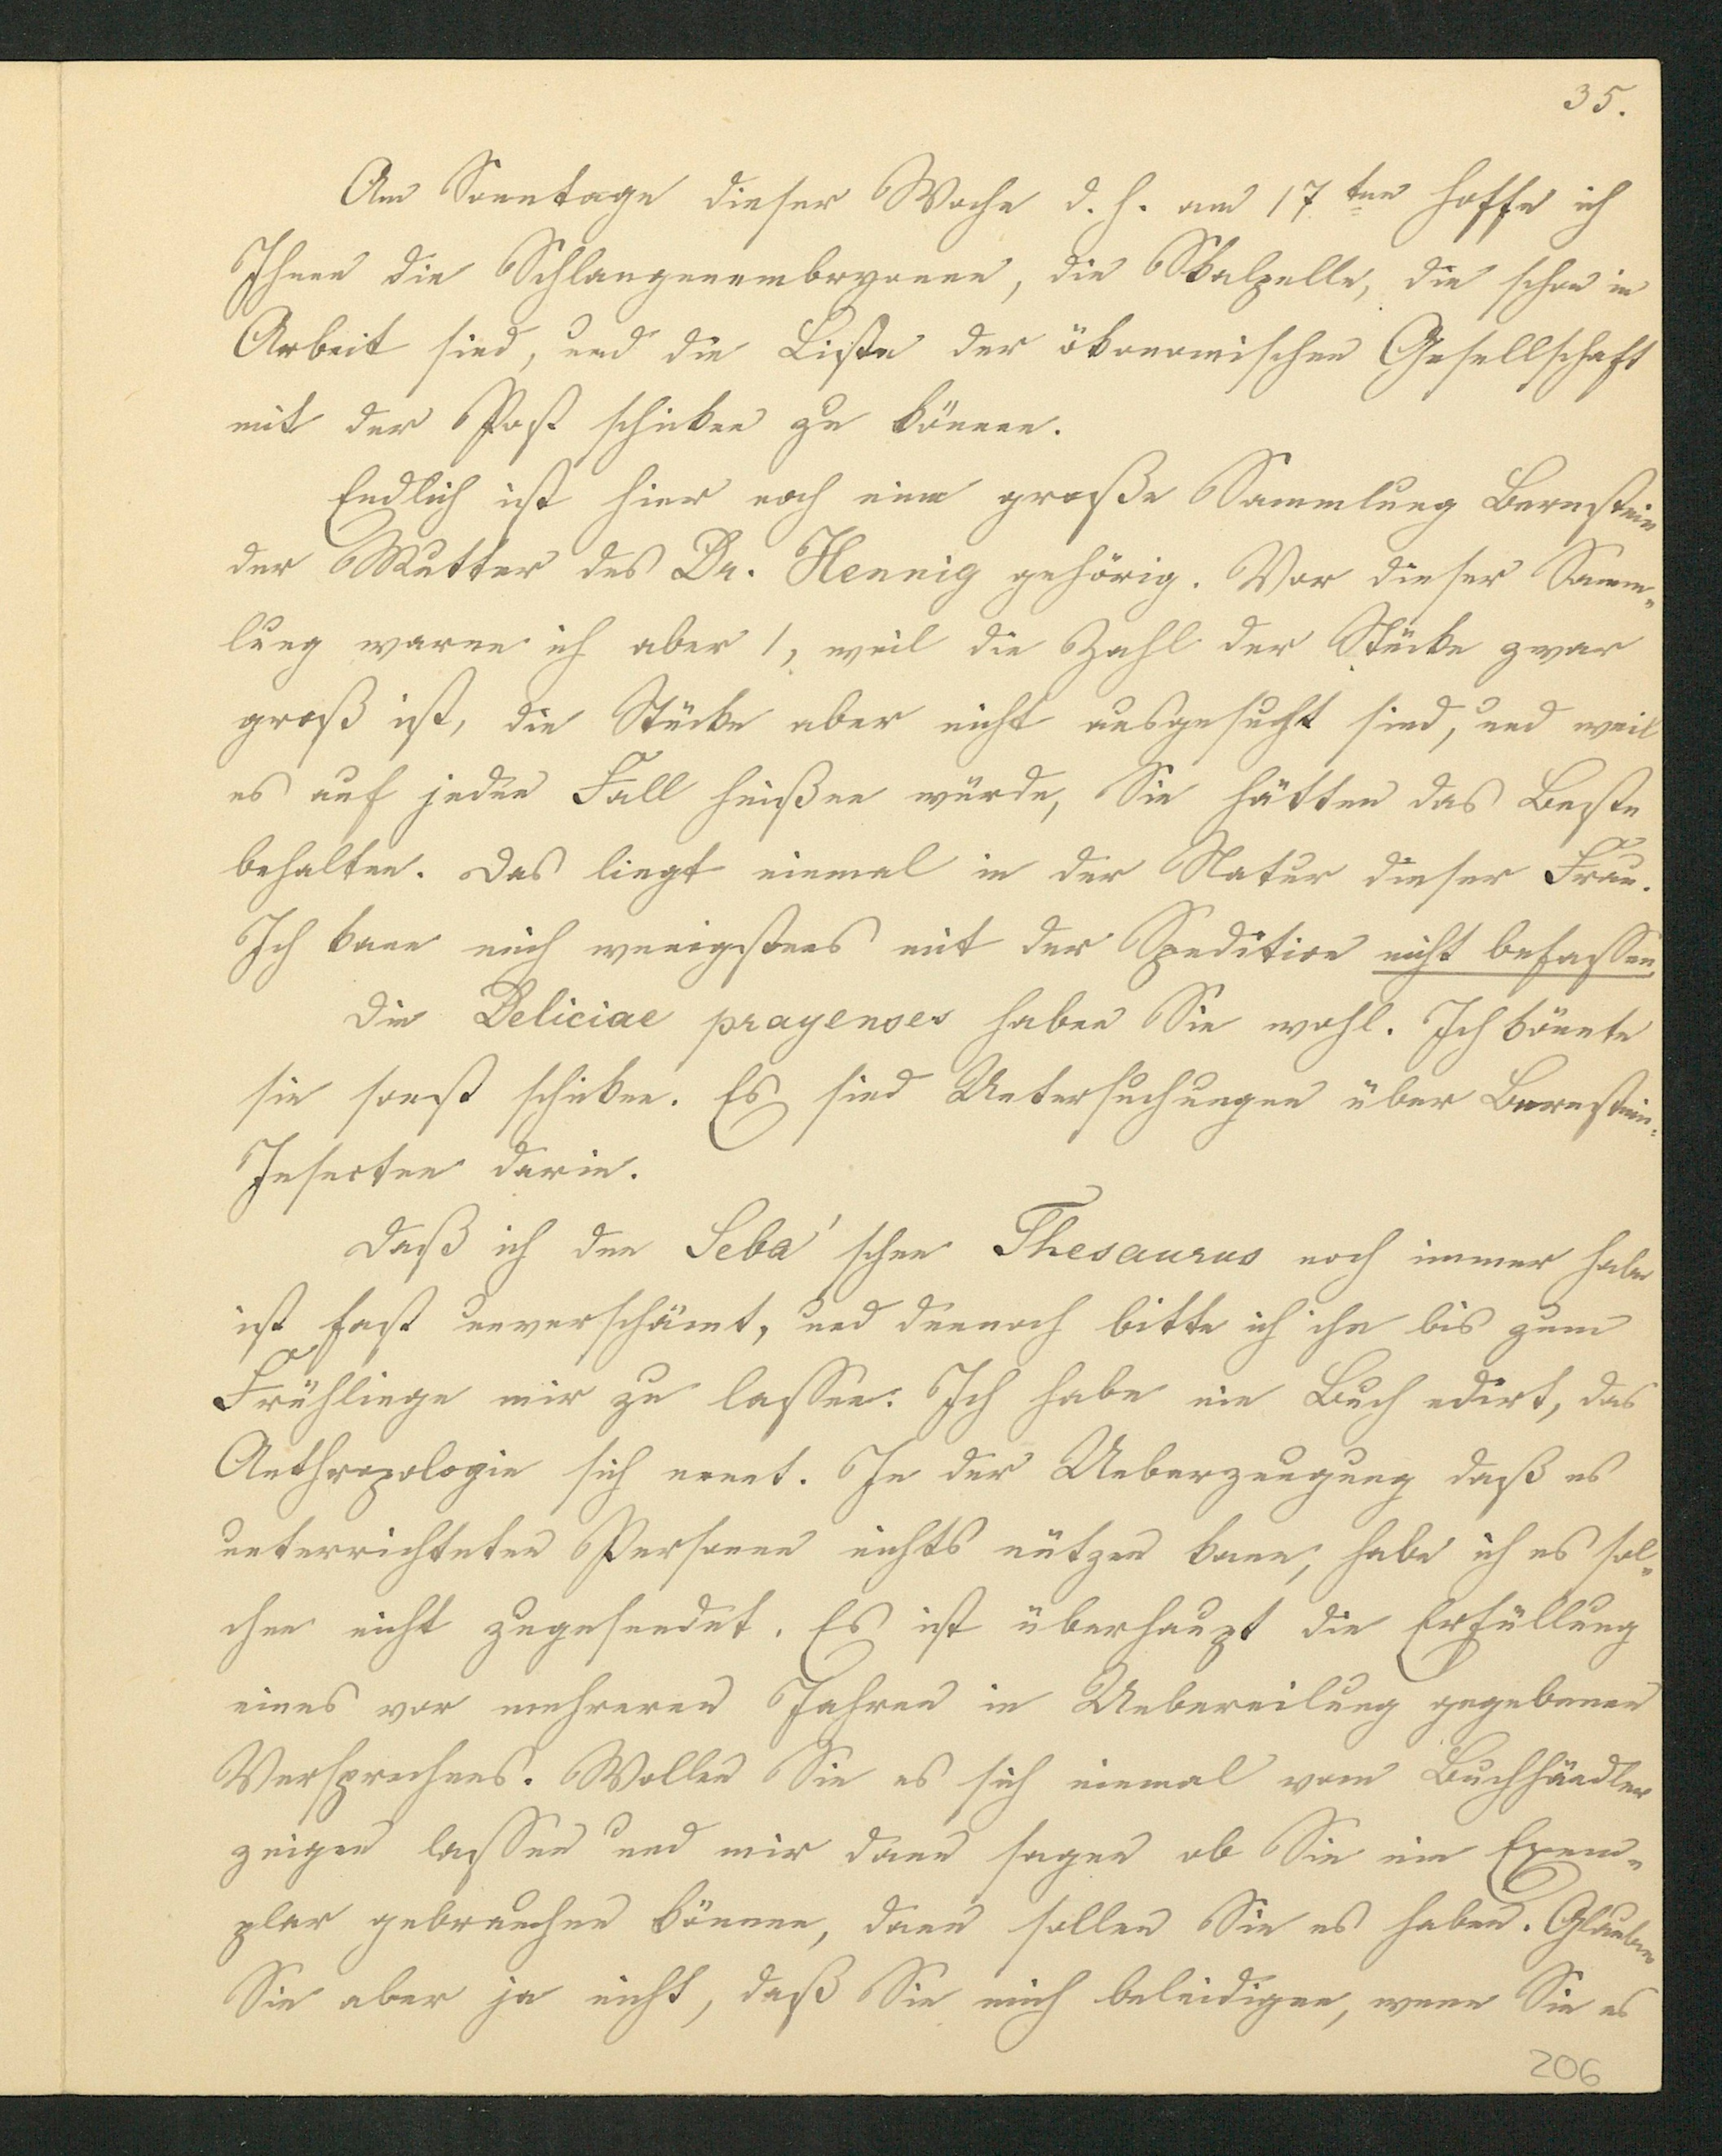 35.
Am Sonntage dieser Woche d. h. am 17ten hoffe ich
Ihnen die Schlangenembryonen, die Skalpelle, die schon in
Arbeit sind, und die Liste der ökonomischen Gesellschaft
mit der Post schicken zu können.
Endlich ist hier noch eine große Sammlung Bernstein
der Mutter des Dr. Hennig gehörig. Vor dieser Samm-
lung warne ich aber 1, weil die Zahl der Stücke zwar
groß ist, die Stücke aber nicht ausgesucht sind, und weil
es auf jeden Fall heißen würde, Sie hätten das Beste
behalten. Das liegt einmal in der Natur dieser Frau.
Ich kann mich wenigstens mit der Spedition nicht befassen.
Die Deliciae prayenses haben Sie wohl. Ich könnte
sie sonst schicken. Es sind Untersuchungen über Bernstein-
Insecten darin.
Daß ich den Seba'schen Thesaurus noch immer habe
ist fast unverschämt, und dennoch bitte ich ihn bis zum
Frühlinge mir zu lassen. Ich habe ein Buch edirt, das
Anthropologie sich nennt. In der Ueberzeugung daß es
unterrichteten Personen nichts nützen kann, habe ich es sol-
chen nicht zugesendet. Es ist überhaupt die Erfüllung
eines vor mehreren Jahren in Uebereilung gegebenen
Versprechens. Wollen Sie es sich einmal vom Buchhändler
zeigen lassen und mir dann sagen ob Sie ein Exem-
plar gebrauchen können, dann sollen Sie es haben. Glauben
Sie aber ja nicht, daß Sie mich beleidigen, wenn Sie es
206